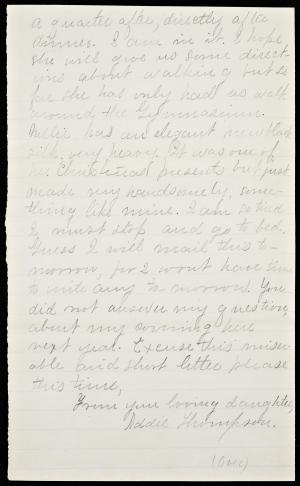 a quarter after, directly after
dinner. I am in it. I hope
she will give us some direct-
ions about walking but so
far she has only had us walk
around the Gymnasium.
Nellie has an elegant new black
silk, very heavy. It was one of
her Christmas presents but just
made very handsomely, some-
thing like mine. I am so tired
I must stop and go to bed.
Guess I will mail this to-
morrow, for I wont have time
to write any to morrow. You
did not answer my question,
about my coming here
next year. Excuse this miser-
able and short letter please
this time,
From your loving daughter,
Addie Thompson.
(Over)